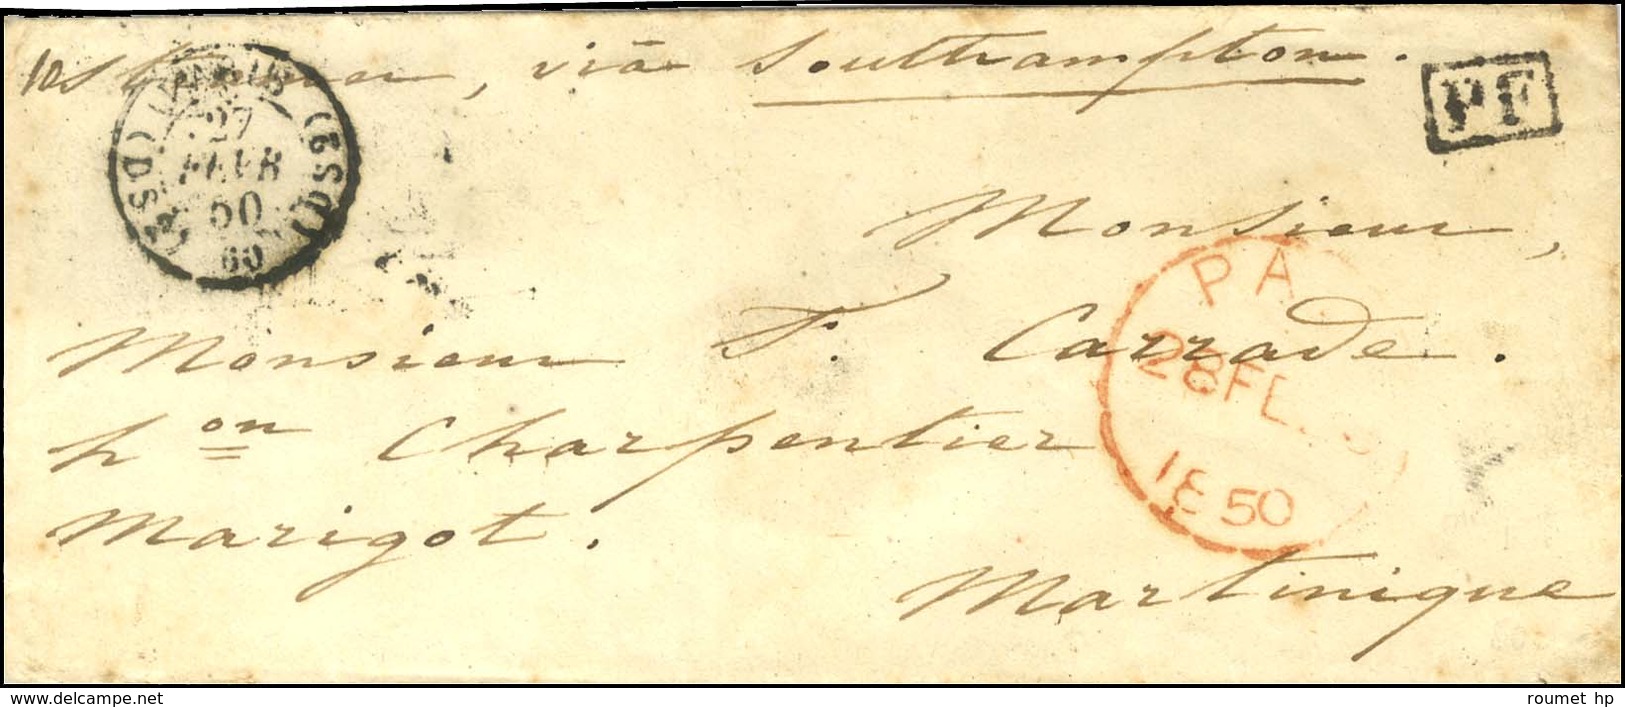 via Southampton.
PF
PARIS
27
FEVR
50
60
Monsieur,
PA
Monsieur F. Carrade.
28 FE
hon Charpentier
1850
Marigot.
Martinique
www.delcampe.net
roumet hp